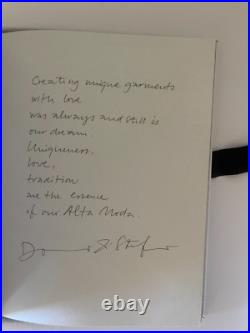 Creating unique garments
with love
was always and still is
our dream.
Uniqueness,
love,
tradition
are the essence
of our Alta Moda.